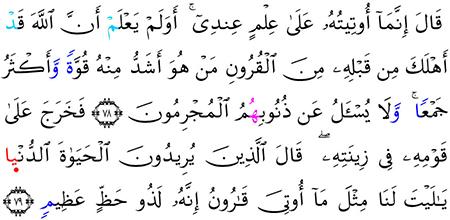 قَالَ إِنَّمَآ أُوتِيتُهُۥ عَلَىٰ عِلْمٍ عِندِىٓ ۚ أَوَلَمْ يَعْلَمْ أَنَّ ٱللَّهَ قَدْ
أَهْلَكَ مِن قَبْلِهِۦ مِنَ ٱلْقُرُونِ مَنْ هُوَ أَشَدُّ مِنْهُ قُوَّةً وَأَكْثَرُ
جَمْعًا ۚ وَلَا يُسْـَٔلُ عَن ذُنُوبِهِمُ ٱلْمُجْرِمُونَ ﴿٧٨﴾ فَخَرَجَ عَلَىٰ
قَوْمِهِۦ فِى زِينَتِهِۦ ۖ قَالَ ٱلَّذِينَ يُرِيدُونَ ٱلْحَيَوٰةَ ٱلدُّنْيَا
يَـٰلَيْتَ لَنَا مِثْلَ مَآ أُوتِىَ قَـٰرُونُ إِنَّهُۥ لَذُو حَظٍّ عَظِيمٍ ﴿٧٩﴾